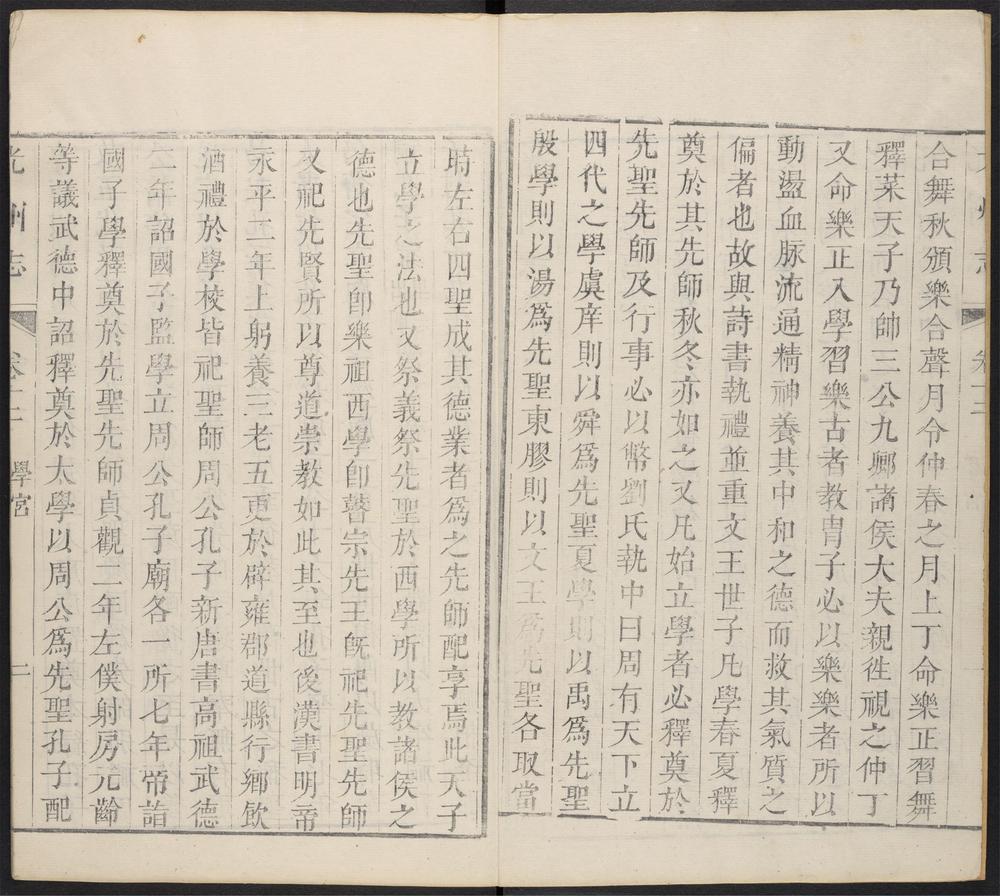 合舞秋頒樂合聲月令仲春之月上丁命樂正習舞
釋菜天子乃帥三公九鄉諸侯大夫親徃視之仲丁
又命樂正入學習樂古者教胄子必以樂樂者所以
動盪血脉流通精神養其中和之德而救其氣質之
偏者也故與詩書執禮並重文王世子凡學春夏釋
奠於其先師秋冬亦如之又凡始立學者必釋奠於
先聖先師及行事必以幣劉氏執中曰周有天下立
四代之學虞庠則以舜爲先聖夏學則以禹爲先聖
殷學則以湯爲先聖東膠則以文王爲先聖各取當
時左右四聖成其德業者爲之先師配享焉此天子
立學之法也又祭義祭先聖於西學所以教諸侯之
德也先聖卽樂祖西學卽瞽宗先王旣祀先聖先師
又祀先賢所以尊道崇教如此其至也後漢書明帝
永平二年上躬養三老五更於辟雍郡道縣行鄉飮
酒禮於學校皆祀聖師周公孔子新唐書高祖武德
二年詔國子監學立周公孔子廟各一所七年帝詣
國子學釋奠於先聖先師貞觀二年左僕射房元齡
等議武德中詔釋奠於太學以周公爲先聖孔子配
光州志 卷十二 學宮 二